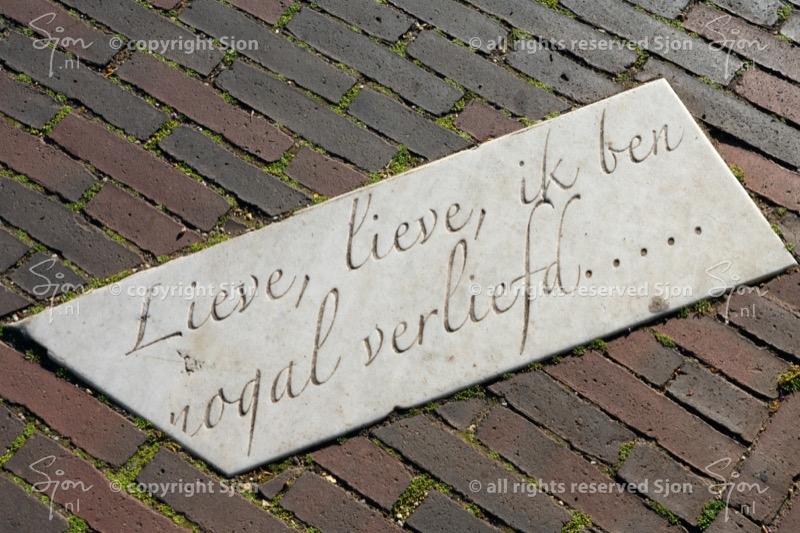 Sjon .nl © copyright Sjon © all rights reserved Sjon Sjon .nl
Lieve, lieve, ik ben
nogal verliefd.....
Sjon .nl © copyright Sjon © all rights reserved Sjon Sjon .nl
Sjon .nl © copyright Sjon © all rights reserved Sjon Sjon .nl